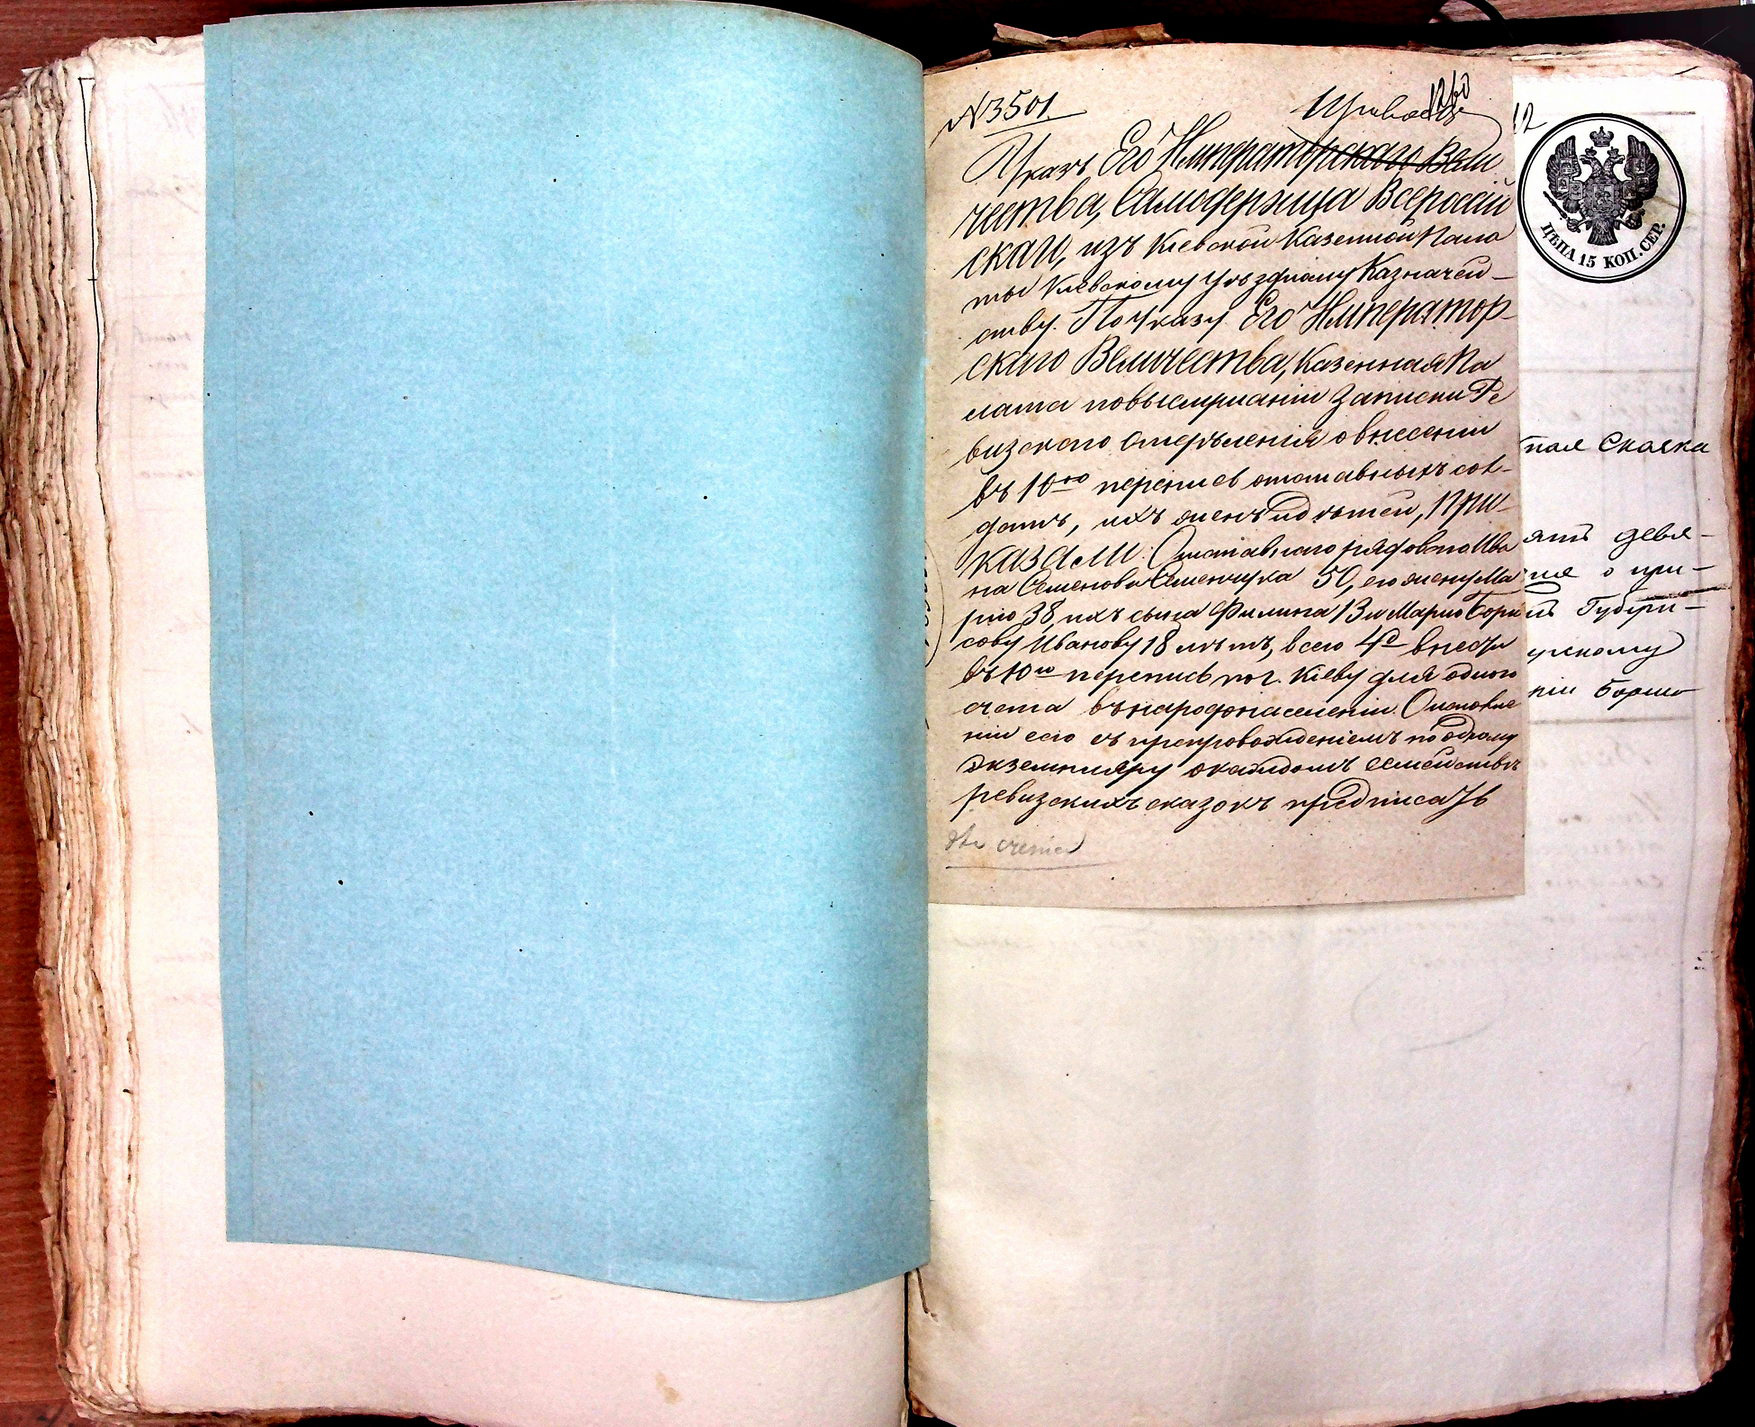 № 3501.
1260
Указъ Его Императорскаго Вели
чества, Самодержца Всероссій
скаго, изъ Кіевской Казенной Пала
ты Кіевскому Уѣздному Казначей-
ству. По Указу Его Император-
скаго Величества, Казенная Па
лата по выслушаніи Записки Ре
визскаго Отдѣленія о внесеніи
въ 10ю перепись отставныхъ сол-
датъ, ихъ женъ и дѣтей, При-
казали: Отставнаго рядоваго Ива
на Семенова Семенчука 50, его жену Ма
рію 38, ихъ сына Филипа 13 и Марію Бори
сову Иванову 18 лѣтъ, всего 4 д внести
въ 10ю перепись по г. Кіеву для одного
счета въ народонаселеніи. О исполне
ніи сего съ препровожденіемъ по одному
экземпляру о каждомъ семействѣ
ревизскихъ сказокъ предписать
12
ЦѢНА 15 КОП. СЕР.
ная Сказка
ятъ девя-
ія о при-
Губерн-
скому
ніи